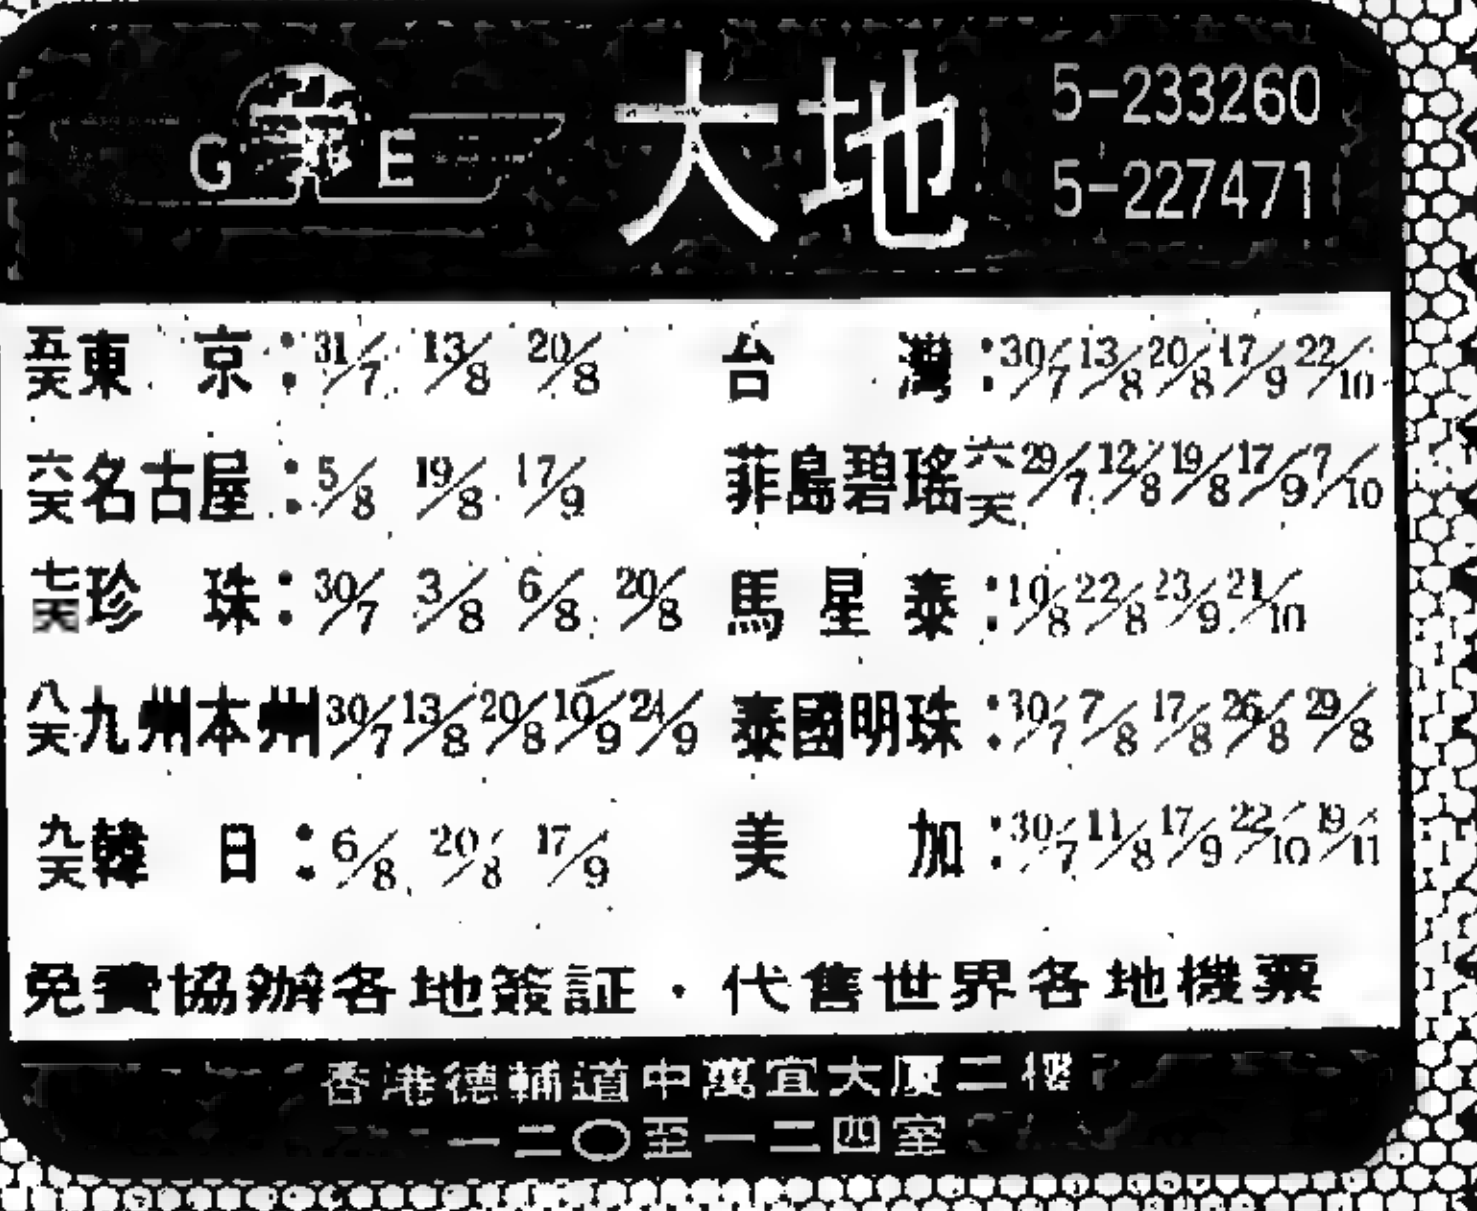 G E 大地 5-233260
5-227471
五天東京：31/7 13/8 20/8
六天名古屋：5/8 19/8 17/9
七天珍珠：30/7 3/8 6/8 20/8
八天九州本州30/7 13/8 20/8 10/9 24/9
九天韓日：6/8 20/8 17/9
台灣：30/7 13/8 20/8 17/9 22/10
菲島碧瑤六天29/7 12/8 19/8 17/9 7/10
馬星泰：10/8 22/8 23/9 21/10
泰國明珠：30/7 7/8 17/8 26/8 29/8
美加：30/7 11/8 17/9 22/10 19/11
免費協辦各地簽証・代售世界各地機票
香港德輔道中萬宜大厦二樓
一二〇至一二四室